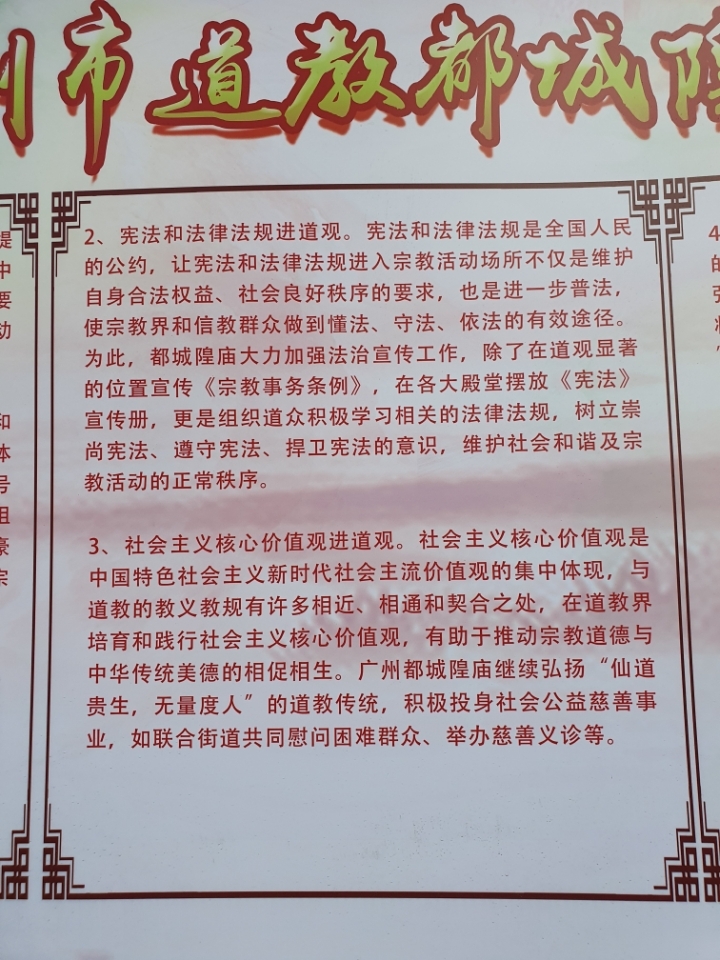 州市道教都城隍
2、宪法和法律法规进道观。宪法和法律法规是全国人民
的公约，让宪法和法律法规进入宗教活动场所不仅是维护
自身合法权益、社会良好秩序的要求，也是进一步普法，
使宗教界和信教群众做到懂法、守法、依法的有效途径。
为此，都城隍庙大力加强法治宣传工作，除了在道观显著
的位置宣传《宗教事务条例》，在各大殿堂摆放《宪法》
宣传册，更是组织道众积极学习相关的法律法规，树立崇
尚宪法、遵守宪法、捍卫宪法的意识，维护社会和谐及宗
教活动的正常秩序。
3、社会主义核心价值观进道观。社会主义核心价值观是
中国特色社会主义新时代社会主流价值观的集中体现，与
道教的教义教规有许多相近、相通和契合之处，在道教界
培育和践行社会主义核心价值观，有助于推动宗教道德与
中华传统美德的相促相生。广州都城隍庙继续弘扬“仙道
贵生，无量度人”的道教传统，积极投身社会公益慈善事
业，如联合街道共同慰问困难群众、举办慈善义诊等。